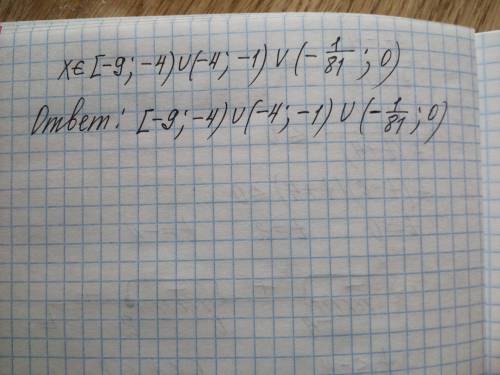 x∈[-9; -4)∪(-4; -1)∪(-1/81; 0)
Ответ: [-9; -4)∪(-4; -1)∪(-1/81; 0)